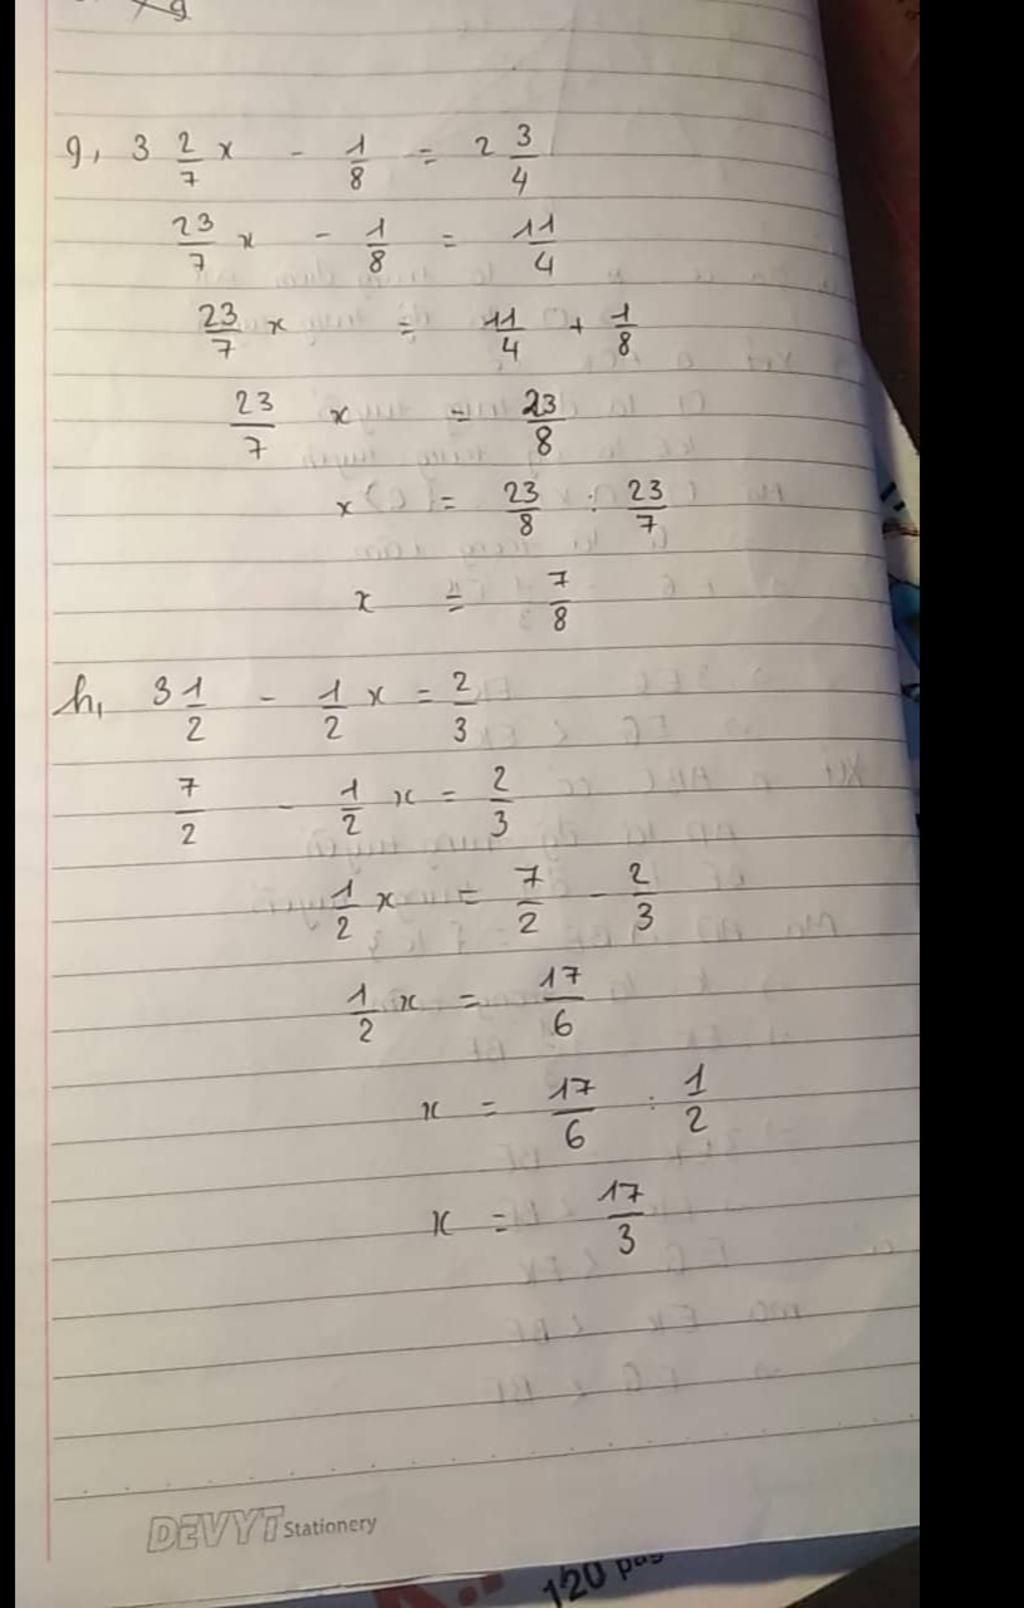 g, 3 2/7 x - 1/8 = 2 3/4
23/7 x - 1/8 = 11/4
23/7 x = 11/4 + 1/8
23/7 x = 23/8
x = 23/8 : 23/7
x = 7/8
h, 3 1/2 - 1/2 x = 2/3
7/2 - 1/2 x = 2/3
1/2 x = 7/2 - 2/3
1/2 x = 17/6
x = 17/6 : 1/2
x = 17/3
DEVYT Stationery
120